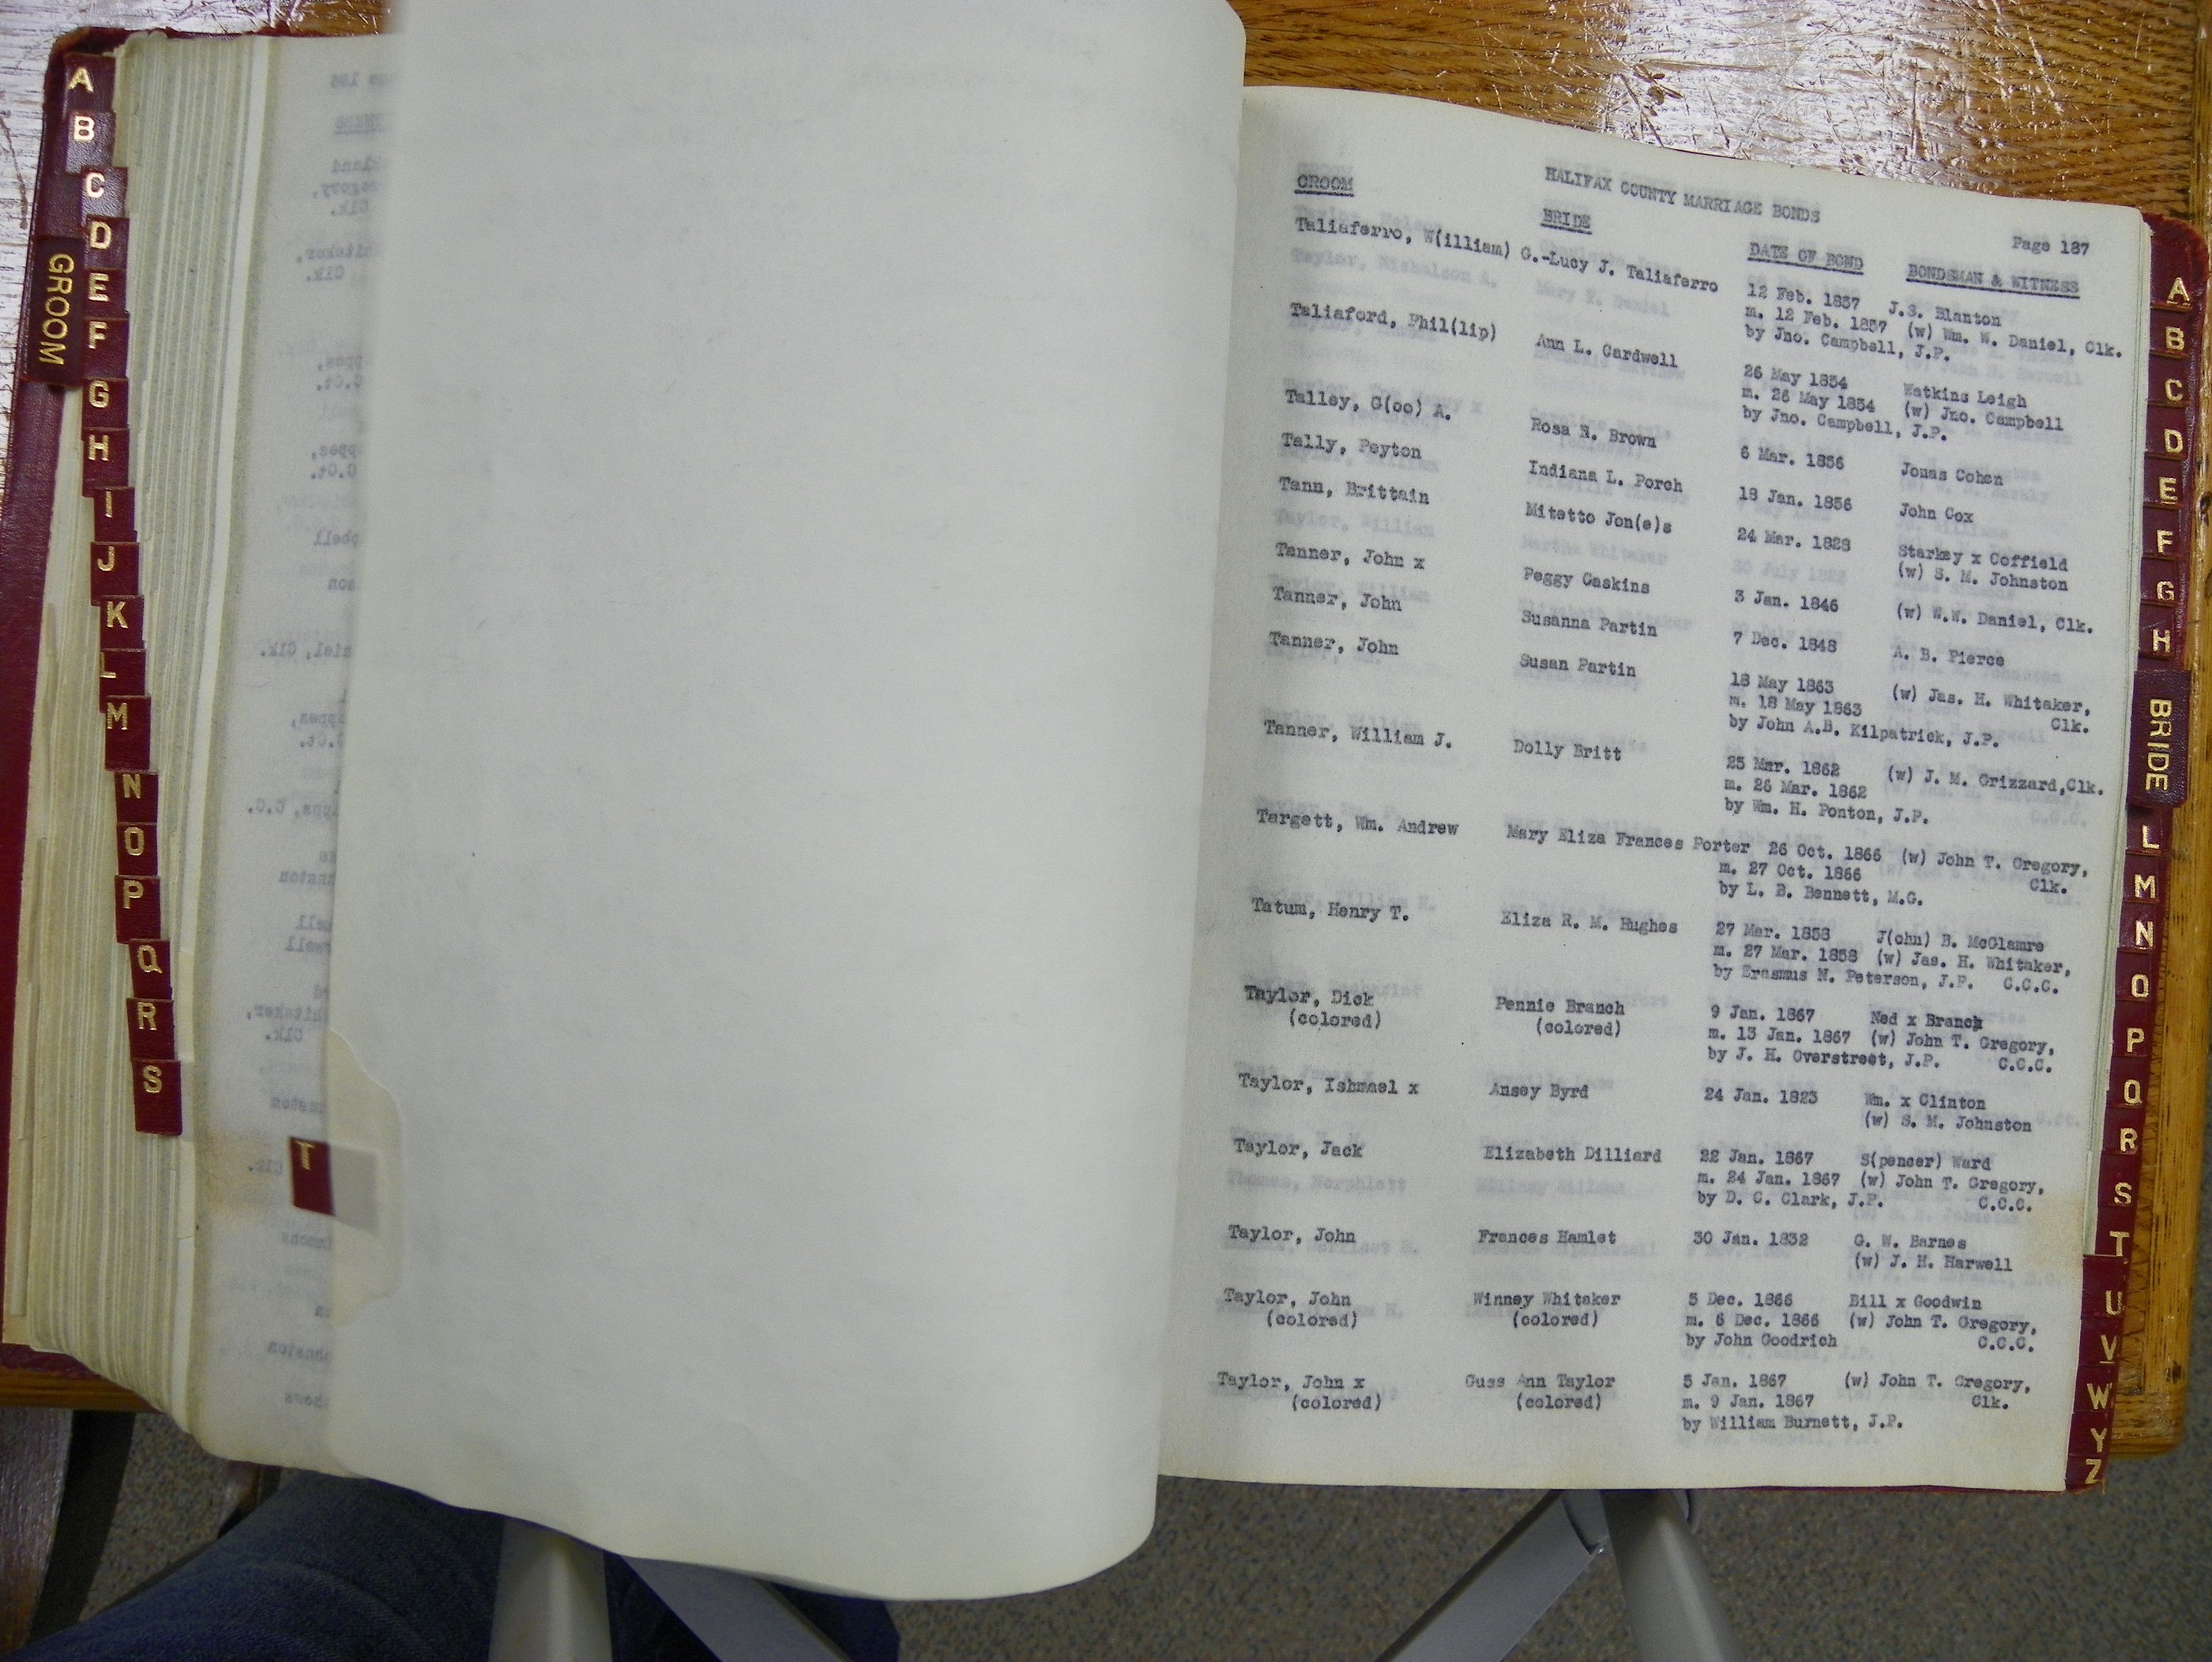 A
B
C
D
E
F
G
H
I
J
K
L
M
N
O
P
Q
R
S
GROOM
T
HALIFAX COUNTY MARRIAGE BONDS
Page 187
GROOM BRIDE DATE OF BOND BONDSMAN & WITNESS
Taliaferro, W(illiam) G.-Lucy J. Taliaferro 12 Feb. 1857 J.S. Blanton
m. 12 Feb. 1857 (w) Wm. W. Daniel, Clk.
by Jno. Campbell, J.P.
Taliaford, Phil(lip) Ann L. Cardwell 26 May 1854 Watkins Leigh
m. 26 May 1854 (w) Jno. Campbell
by Jno. Campbell, J.P.
Talley, G(oo) A. Rosa R. Brown 6 Mar. 1856 Jonas Cohen
Tally, Peyton Indiana L. Porch 18 Jan. 1856 John Cox
Tann, Brittain Mitetto Jon(e)s 24 Mar. 1828 Starkey x Coffield
(w) S. M. Johnston
Tanner, John x Peggy Gaskins 3 Jan. 1846 (w) W.W. Daniel, Clk.
Tanner, John Susanna Partin 7 Dec. 1848 A. B. Pierce
Tanner, John Susan Partin 18 May 1863 (w) Jas. H. Whitaker,
m. 18 May 1863 Clk.
by John A.B. Kilpatrick, J.P.
Tanner, William J. Dolly Britt 25 Mar. 1862 (w) J. M. Grizzard,Clk.
m. 26 Mar. 1862
by Wm. H. Ponton, J.P.
Targett, Wm. Andrew Mary Eliza Frances Porter 26 Oct. 1866 (w) John T. Gregory,
m. 27 Oct. 1866 Clk.
by L. B. Bennett, M.G.
Tatum, Henry T. Eliza R. M. Hughes 27 Mar. 1858 J(ohn) B. McGlamre
m. 27 Mar. 1858 (w) Jas. H. Whitaker,
by Erasmus N. Peterson, J.P. C.C.C.
Taylor, Dick Pennie Branch 9 Jan. 1867 Ned x Branch
(colored) (colored) m. 13 Jan. 1867 (w) John T. Gregory,
by J. H. Overstreet, J.P. C.C.C.
Taylor, Ishmael x Ansey Byrd 24 Jan. 1823 Wm. x Clinton
(w) S. M. Johnston
Taylor, Jack Elizabeth Dilliard 22 Jan. 1867 S(pencer) Ward
m. 24 Jan. 1867 (w) John T. Gregory,
by D. C. Clark, J.P. C.C.C.
Taylor, John Frances Hamlet 30 Jan. 1832 G. W. Barnes
(w) J. H. Harwell
Taylor, John Winney Whitaker 5 Dec. 1866 Bill x Goodwin
(colored) (colored) m. 6 Dec. 1866 (w) John T. Gregory,
by John Goodrich C.C.C.
Taylor, John x Guss Ann Taylor 5 Jan. 1867 (w) John T. Gregory,
(colored) (colored) m. 9 Jan. 1867 Clk.
by William Burnett, J.P.
A
B
C
D
E
F
G
H
BRIDE
L
M
N
O
P
Q
R
S
T
U
V
W
Y
Z